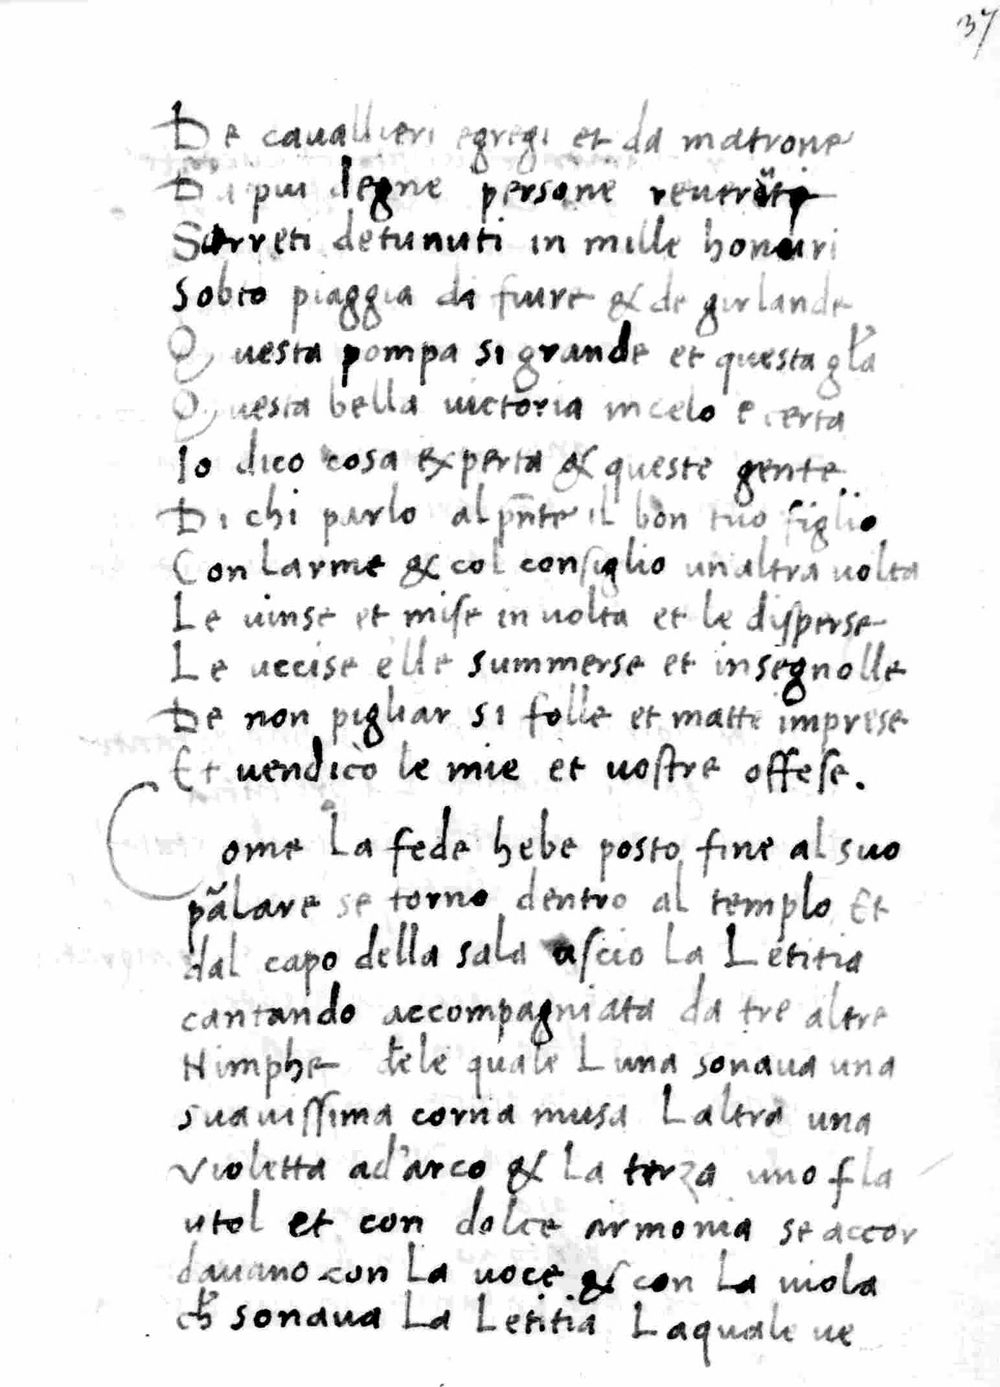 37
De cauallieri egregi et da matrone
Da piu degne persone reuerẽti
Sarreti detunuti in mille honuri
Sobto piaggia di fiure & de girlande
Questa pompa si grande et questa gl̃a
Questa bella uictoria in celo e certa
Io dico cosa experta & queste gente
Di chi parlo al pñte il bon tuo figlio
Con larme & col consiglio unaltra uolta
Le uinse et mise in uolta et le disperse
Le uccise e lle summerse et insegnolle
De non pigliar si folle et matte imprese
Et uendicò le mie et uostre offese.
Come la fede hebe posto fine al suo
pãlare se torno dentro al templo Et
dal capo della sala uscio la Letitia
cantando accompagniata da tre altre
Nimphe dele quale Luna sonaua una
suauissima corna musa Laltra una
violetta ad'arco & la terza uno fla
utol et con dolce armonia se accor
dauano con la uoce & con la uiola
ch̃ sonaua La Letitia Laquale ue